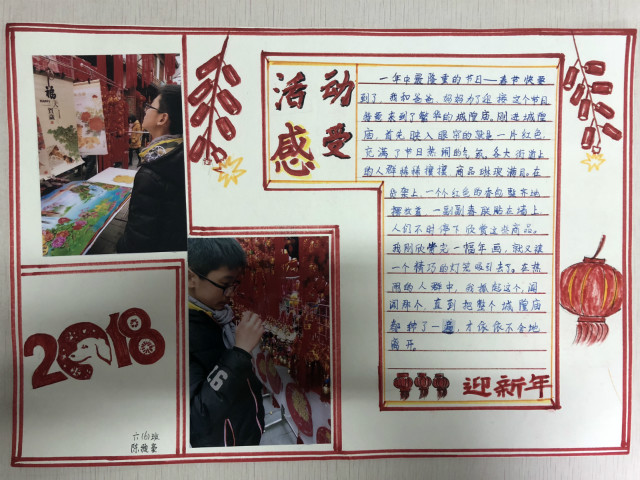 活动
感受
一年中最隆重的节日——春节快要
到了，我和爸爸、妈妈为了迎接这个节日
特意来到了繁华的城隍庙。刚进城隍
庙，首先映入眼帘的就是一片红色，
充满了节日热闹的气氛。各大街道上
的人群熙熙攘攘，商品琳琅满目。在
货架上，一个个红色的香包整齐地
摆放着，一副副春联贴在墙上，
人们不时停下欣赏这些商品。
我刚欣赏完一幅年画，就又被
一个精巧的灯笼吸引去了。在热
闹的人群中，我摸摸这个，闻
闻那个，直到把整个城隍庙
都转了一遍，才依依不舍地
离开。
迎新年
福
2018
六(6)班